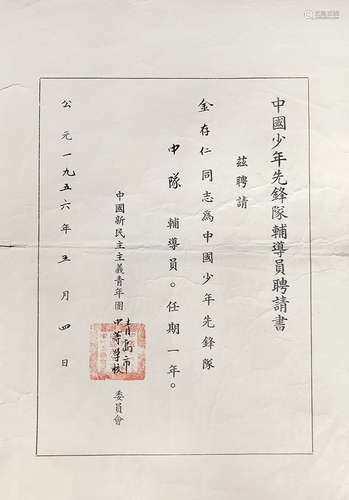 中國少年先鋒隊輔導員聘請書
茲聘請
金存仁同志為中國少年先鋒隊
中隊輔導員。任期一年。
中國新民主主義青年團
青島市
中等學校
委員會
公元一九五六年五月四日